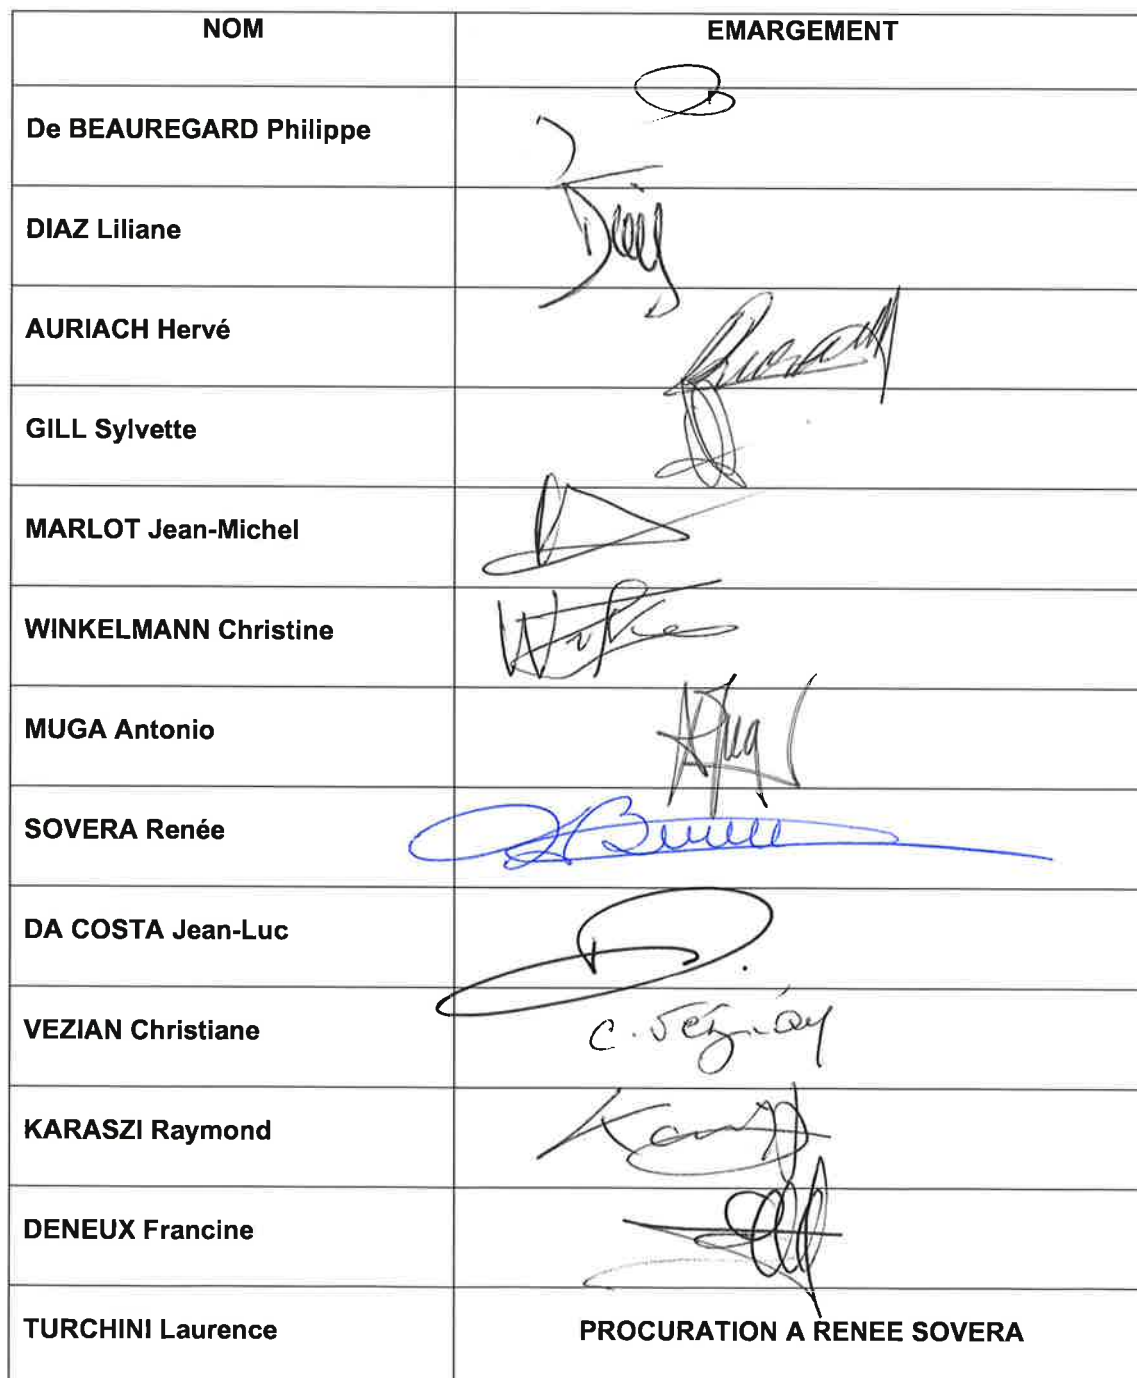 NOM EMARGEMENT
De BEAUREGARD Philippe
DIAZ Liliane
AURIACH Hervé
GILL Sylvette
MARLOT Jean-Michel
WINKELMANN Christine
MUGA Antonio
SOVERA Renée
DA COSTA Jean-Luc
VEZIAN Christiane
KARASZI Raymond
DENEUX Francine
TURCHINI Laurence PROCURATION A RENEE SOVERA